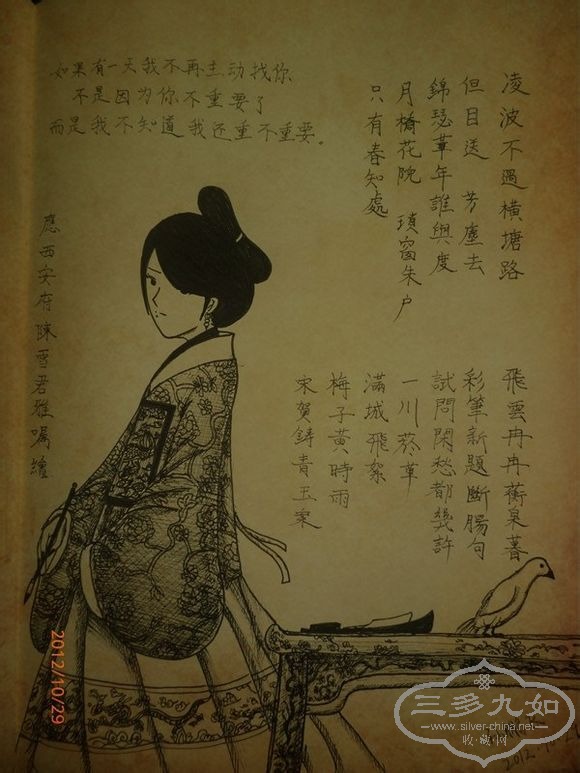 如果有一天我不再主动找你
不是因为你不重要了
而是我不知道我还重不重要。
凌波不過橫塘路
但目送 芳塵去
錦瑟華年誰與度
月橋花院 瑣窗朱户
只有春知處
飛雲冉冉蘅皋暮
彩筆新題斷腸句
試問閑愁都幾許
一川菸草
滿城飛絮
梅子黃時雨
宋賀鑄青玉案
應西安府陳雪君雅囑繪
2012/10/29
三多九如
www.silver-china.net
收藏网